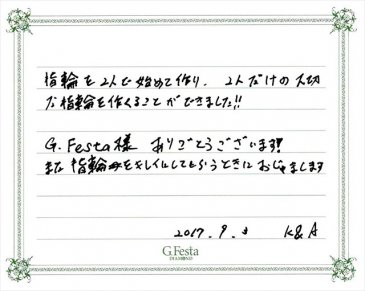 指輪を2人で始めて作り、2人だけの大切
な指輪を作くることができました!!
G.Festa様 ありごとうございます!!
また指輪をキレイにしてもらうときにおじゃまします
2017.9.3 K&A
G.Festa
DIAMOND